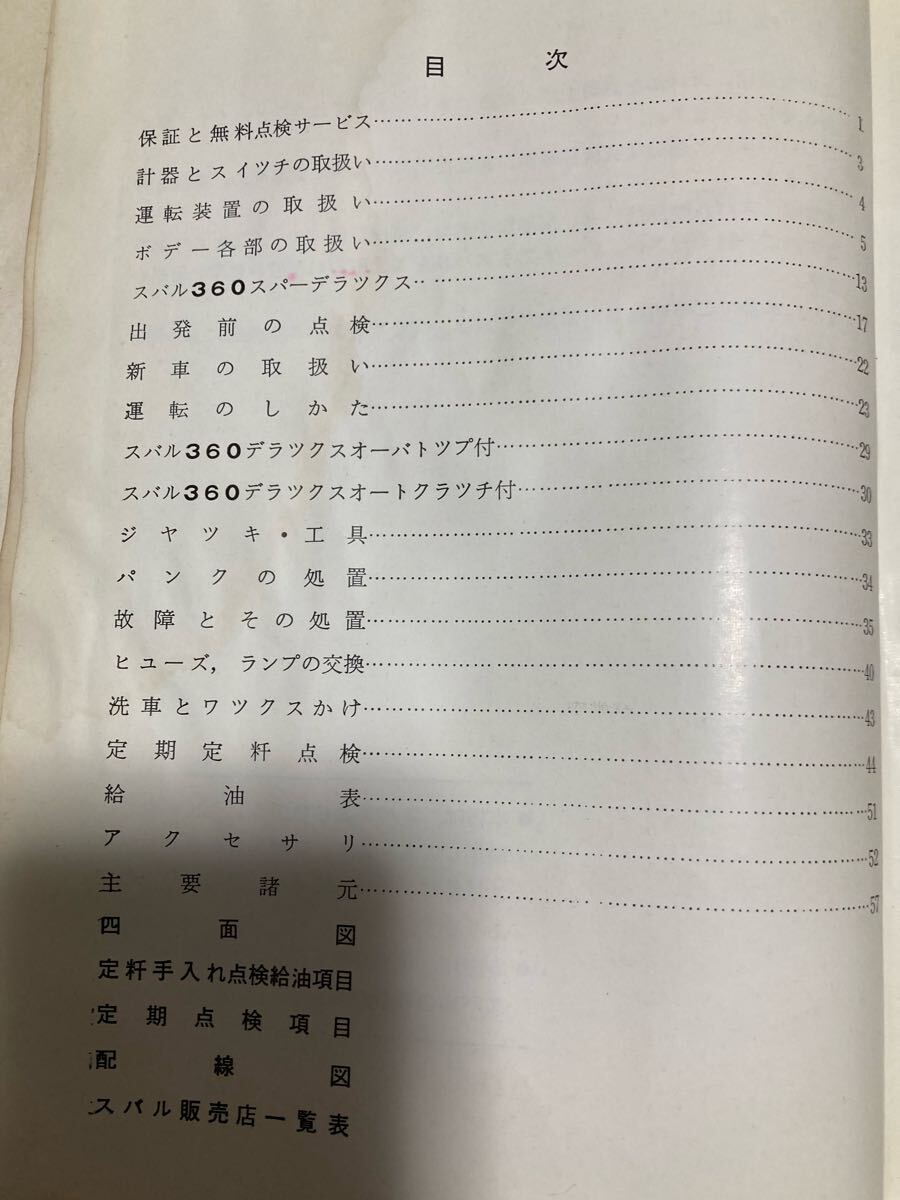 目次
保証と無料点検サービス……………………………1
計器とスイツチの取扱い……………………………3
運転装置の取扱い……………………………4
ボデー各部の取扱い……………………………5
スバル360スパーデラツクス……………………………13
出発前の点検……………………………17
新車の取扱い……………………………22
運転のしかた……………………………23
スバル360デラツクスオーバトツプ付……………………………29
スバル360デラツクスオートクラツチ付……………………………30
ジヤツキ・工具……………………………33
パンクの処置……………………………34
故障とその処置……………………………35
ヒユーズ，ランプの交換……………………………40
洗車とワツクスかけ……………………………43
定期定粁点検……………………………44
給油表……………………………51
アクセサリ……………………………52
主要諸元……………………………57
四面図
定粁手入れ点検給油項目
定期点検項目
配線図
スバル販売店一覧表